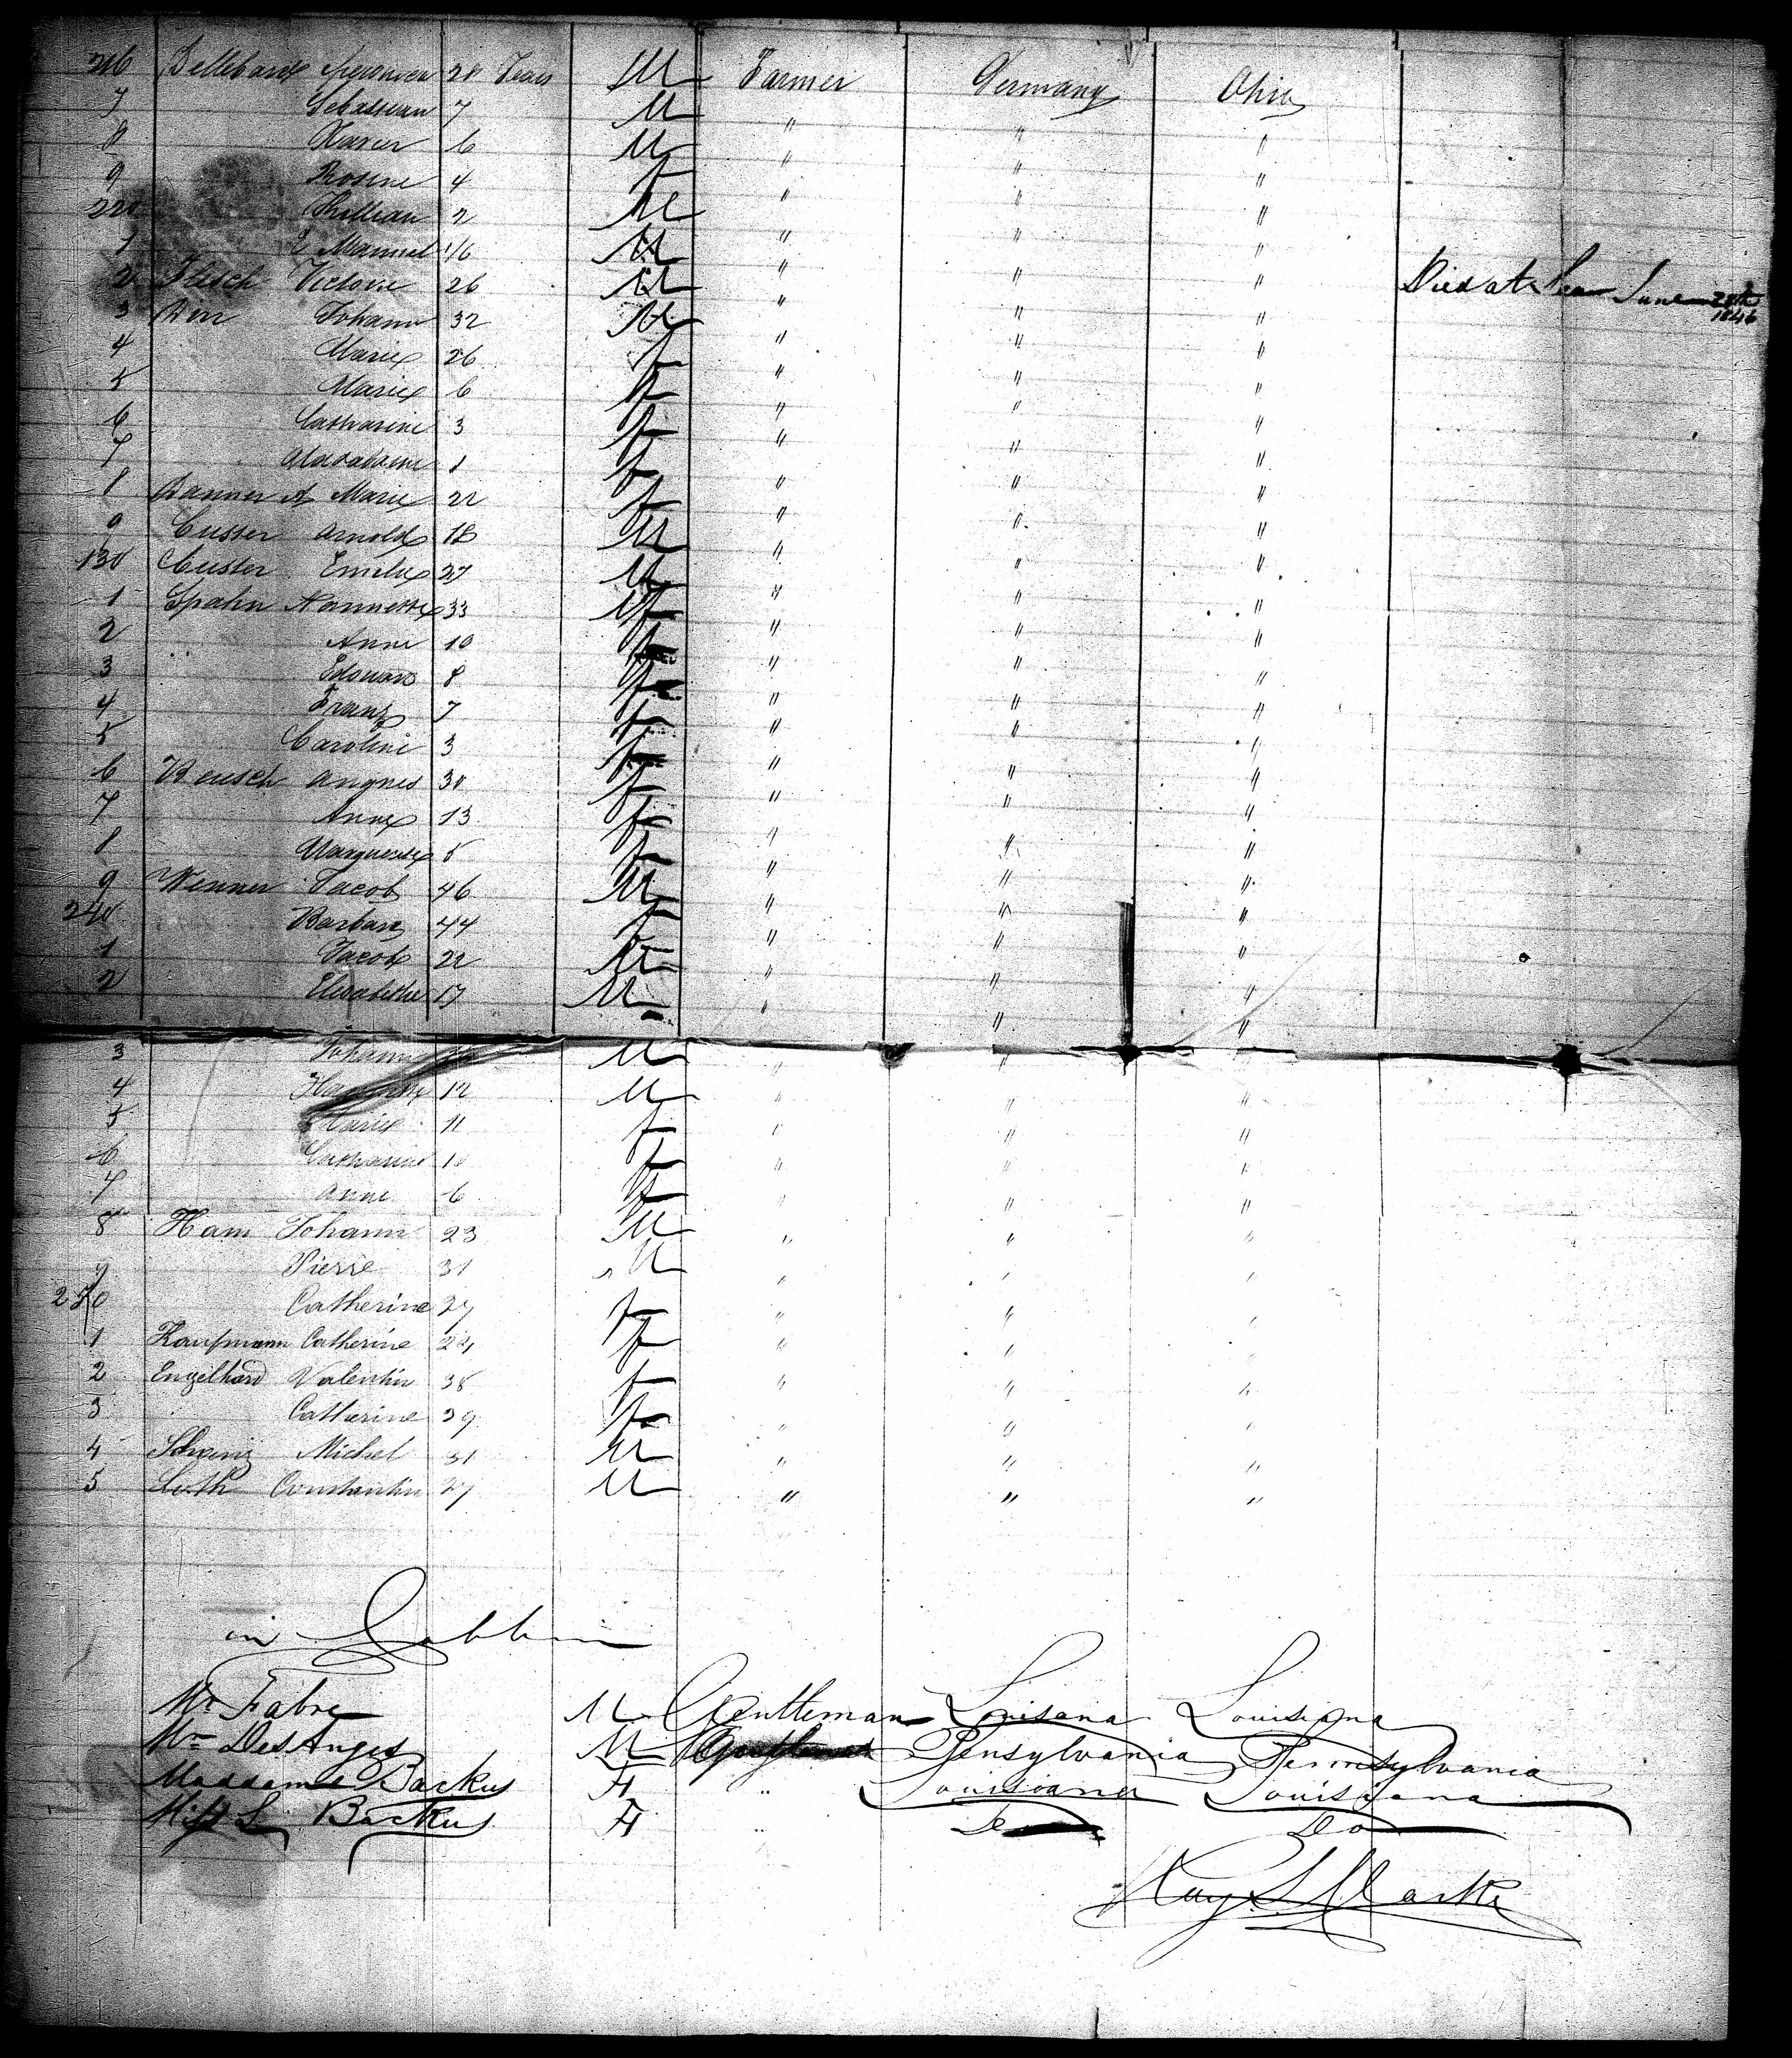 216 Bellebard Veronica 28 Years M Farmer Germany Ohio
7 Sebastian 7 M " " "
8 Xavier 6 M " " "
9 Rosine 4 f " " "
220 2 M " " "
1 E Manuel 1/6 M " " "
2 Victorie 26 M " " " Died at Sea June 28th 1846
3 Johann 32 M " " "
4 Marie 26 f " " "
5 Marie 6 f " " "
6 Catharine 3 f " " "
7 1 f " " "
8 Marie 22 f " " "
9 Cusser Arnold 18 M " " "
130 Custer Emilie 27 M " " "
1 Spahn Nannette 33 f " " "
2 Anne 10 f " " "
3 Edouard 8 " " "
4 Franz 7 " " "
5 Caroline 3 f " " "
6 Reusch Angnes 30 f " " "
7 Anne 13 f " " "
8 Marguerite 5 f " " "
9 Wenner Jacob 46 M " " "
240 Barbara 44 f " " "
1 Jacob 22 M " " "
2 Elisabethe 17 M " " "
3 Johann M " " "
4 12 M " " "
5 Marie 11 f " " "
6 Catharine 10 f " " "
7 Anne 6 f " " "
8 Ham Johann 23 M " " "
9 Pierre 31 M " " "
250 Catherine 27 f " " "
1 Kaufmann Catherine 24 f " " "
2 Engelhard Valentin 38 f " " "
3 Catherine 39 f " " "
4 Michel 31 M " " "
5 Luth Constantin 27 M " " "
in Cabbin
Mr Fabre M Gentleman Louisana Louisiana
Mr DesAnges M Gentleman Pensylvania Pennsylvania
Maddame Backus F " Louisiana Louisiana
Miss L Backus F " Do Do
Clarke